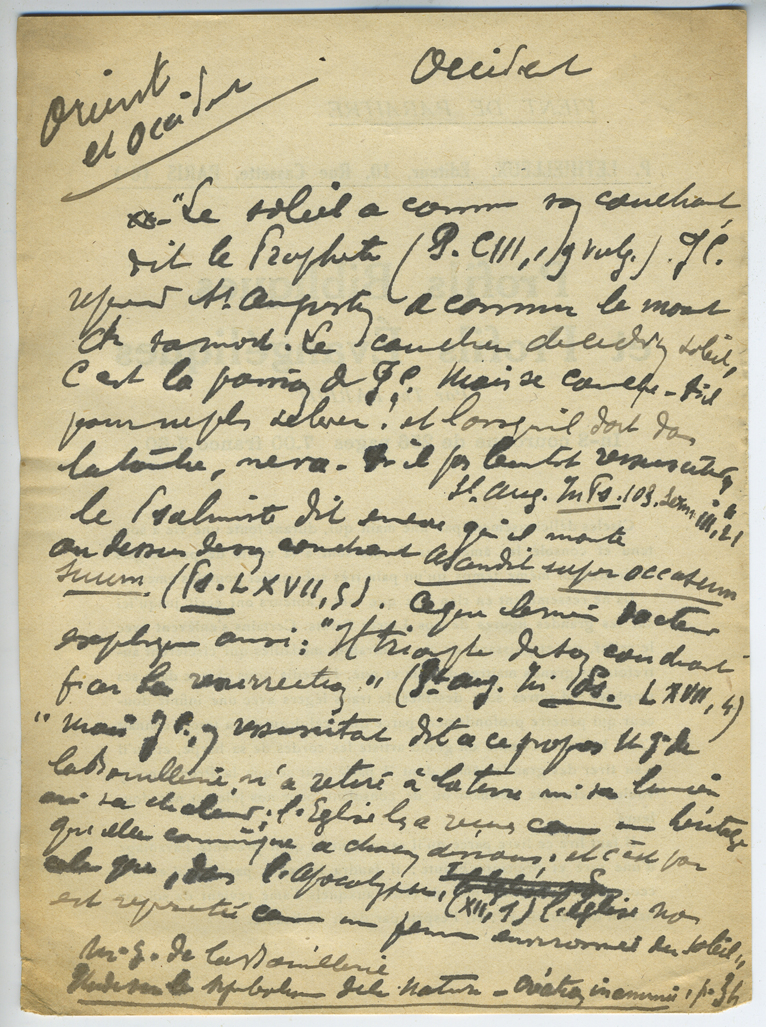 Orient
et Occident
Occident
"Le soleil a connu son couchant,
dit le Prophète (Ps. CIII, 19 Vulg.). J.C.
reprend St. Augustin a connu le moment
de sa mort. Le coucher de ce divin soleil,
c'est la passion de J.C. Mais se couche-t-il
pour ne plus se lever? et lorsqu'il doit dans
la tombe, ne va-t-il pas bientôt ressusciter
St. Aug. In Ps. 103. Serm. III, 21
le Psalmiste dit encore qu'il monte
au dessus de son couchant ascendit super occasum
suum. (Ps. LXVII, 5). Ce que le même docteur
explique ainsi: "Il triomphe de son couchant
par sa resurrection" (St. Aug. In Ps. LXVII, 4)
"Mais J.C., en ressuscitant dit a ce propos Mgr de
la Bouillerie, n'a retiré à la terre ni sa lumière
ni sa chaleur; l'Eglise les a reçues comme un héritage
qu'elle communique a chacun de nous; et c'est par
cela que, dans l'Apocalypse,
(XII, 1) l'Eglise nous
est représentée comme une femme environnée du soleil,"
M.g. de la Bouillerie
Etude sur le Symbolisme de la Nature - Création inanimée, p. 34